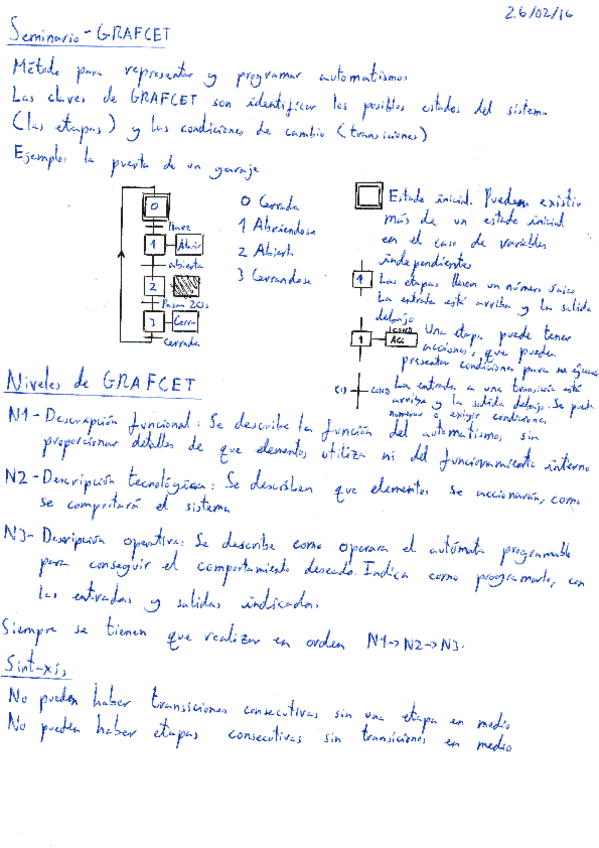 26/02/16
Seminario - GRAFCET
Método para representar y programar automatismos
Las claves de GRAFCET son identificar los posibles estados del sistema
(las etapas) y las condiciones de cambio (transiciones)
Ejemplo: la puerta de un garaje
0
llave
1 Abrir
abierta
2
Pasan 20s
3 Cerra
cerrada
0 Cerrada
1 Abriéndose
2 Abierta
3 Cerrandose
Estado inicial. Pueden existir
más de un estado inicial
en el caso de variables
independientes
1 Las etapas llevan un número único
La entrada está arriba y la salida
debajo
1 Acc COND Una etapa puede tener
acciones, que pueden
presentar condiciones para su
(1) COND La entrada a una transición está
arriba y la salida debajo. Se puede
numerar o exigir condiciones
Niveles de GRAFCET
N1 - Descripción funcional: Se describe la función del automatismos sin
proporcionar detalles de que elementos utiliza ni del funcionamiento interno
N2 - Descripción tecnológica: Se describen que elementos se accionarán, como
se comportará el sistema
N3 - Descripción operativa: Se describe como operara el autómata programable
para conseguir el comportamiento deseado. Indica como programarlo, con
las entradas y salidas indicadas
Siempre se tienen que realizar en orden N1->N2->N3.
Sintaxis
No pueden haber transiciones consecutivas sin una etapa en medio
No pueden haber etapas consecutivas sin transiciones en medio